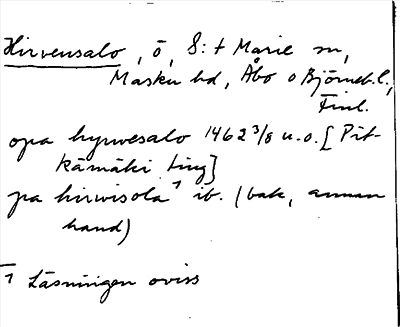 Hirvensalo, ö, S:t Marie sn,
Masku hd, Åbo o Björneb.l.,
Finl.
opa hyrwesalo 1462 3/8 u.o. [Pit-
kämäki ting]
pa hirwisola¹ ib. (bak, annan
hand)
1 Läsningen oviss